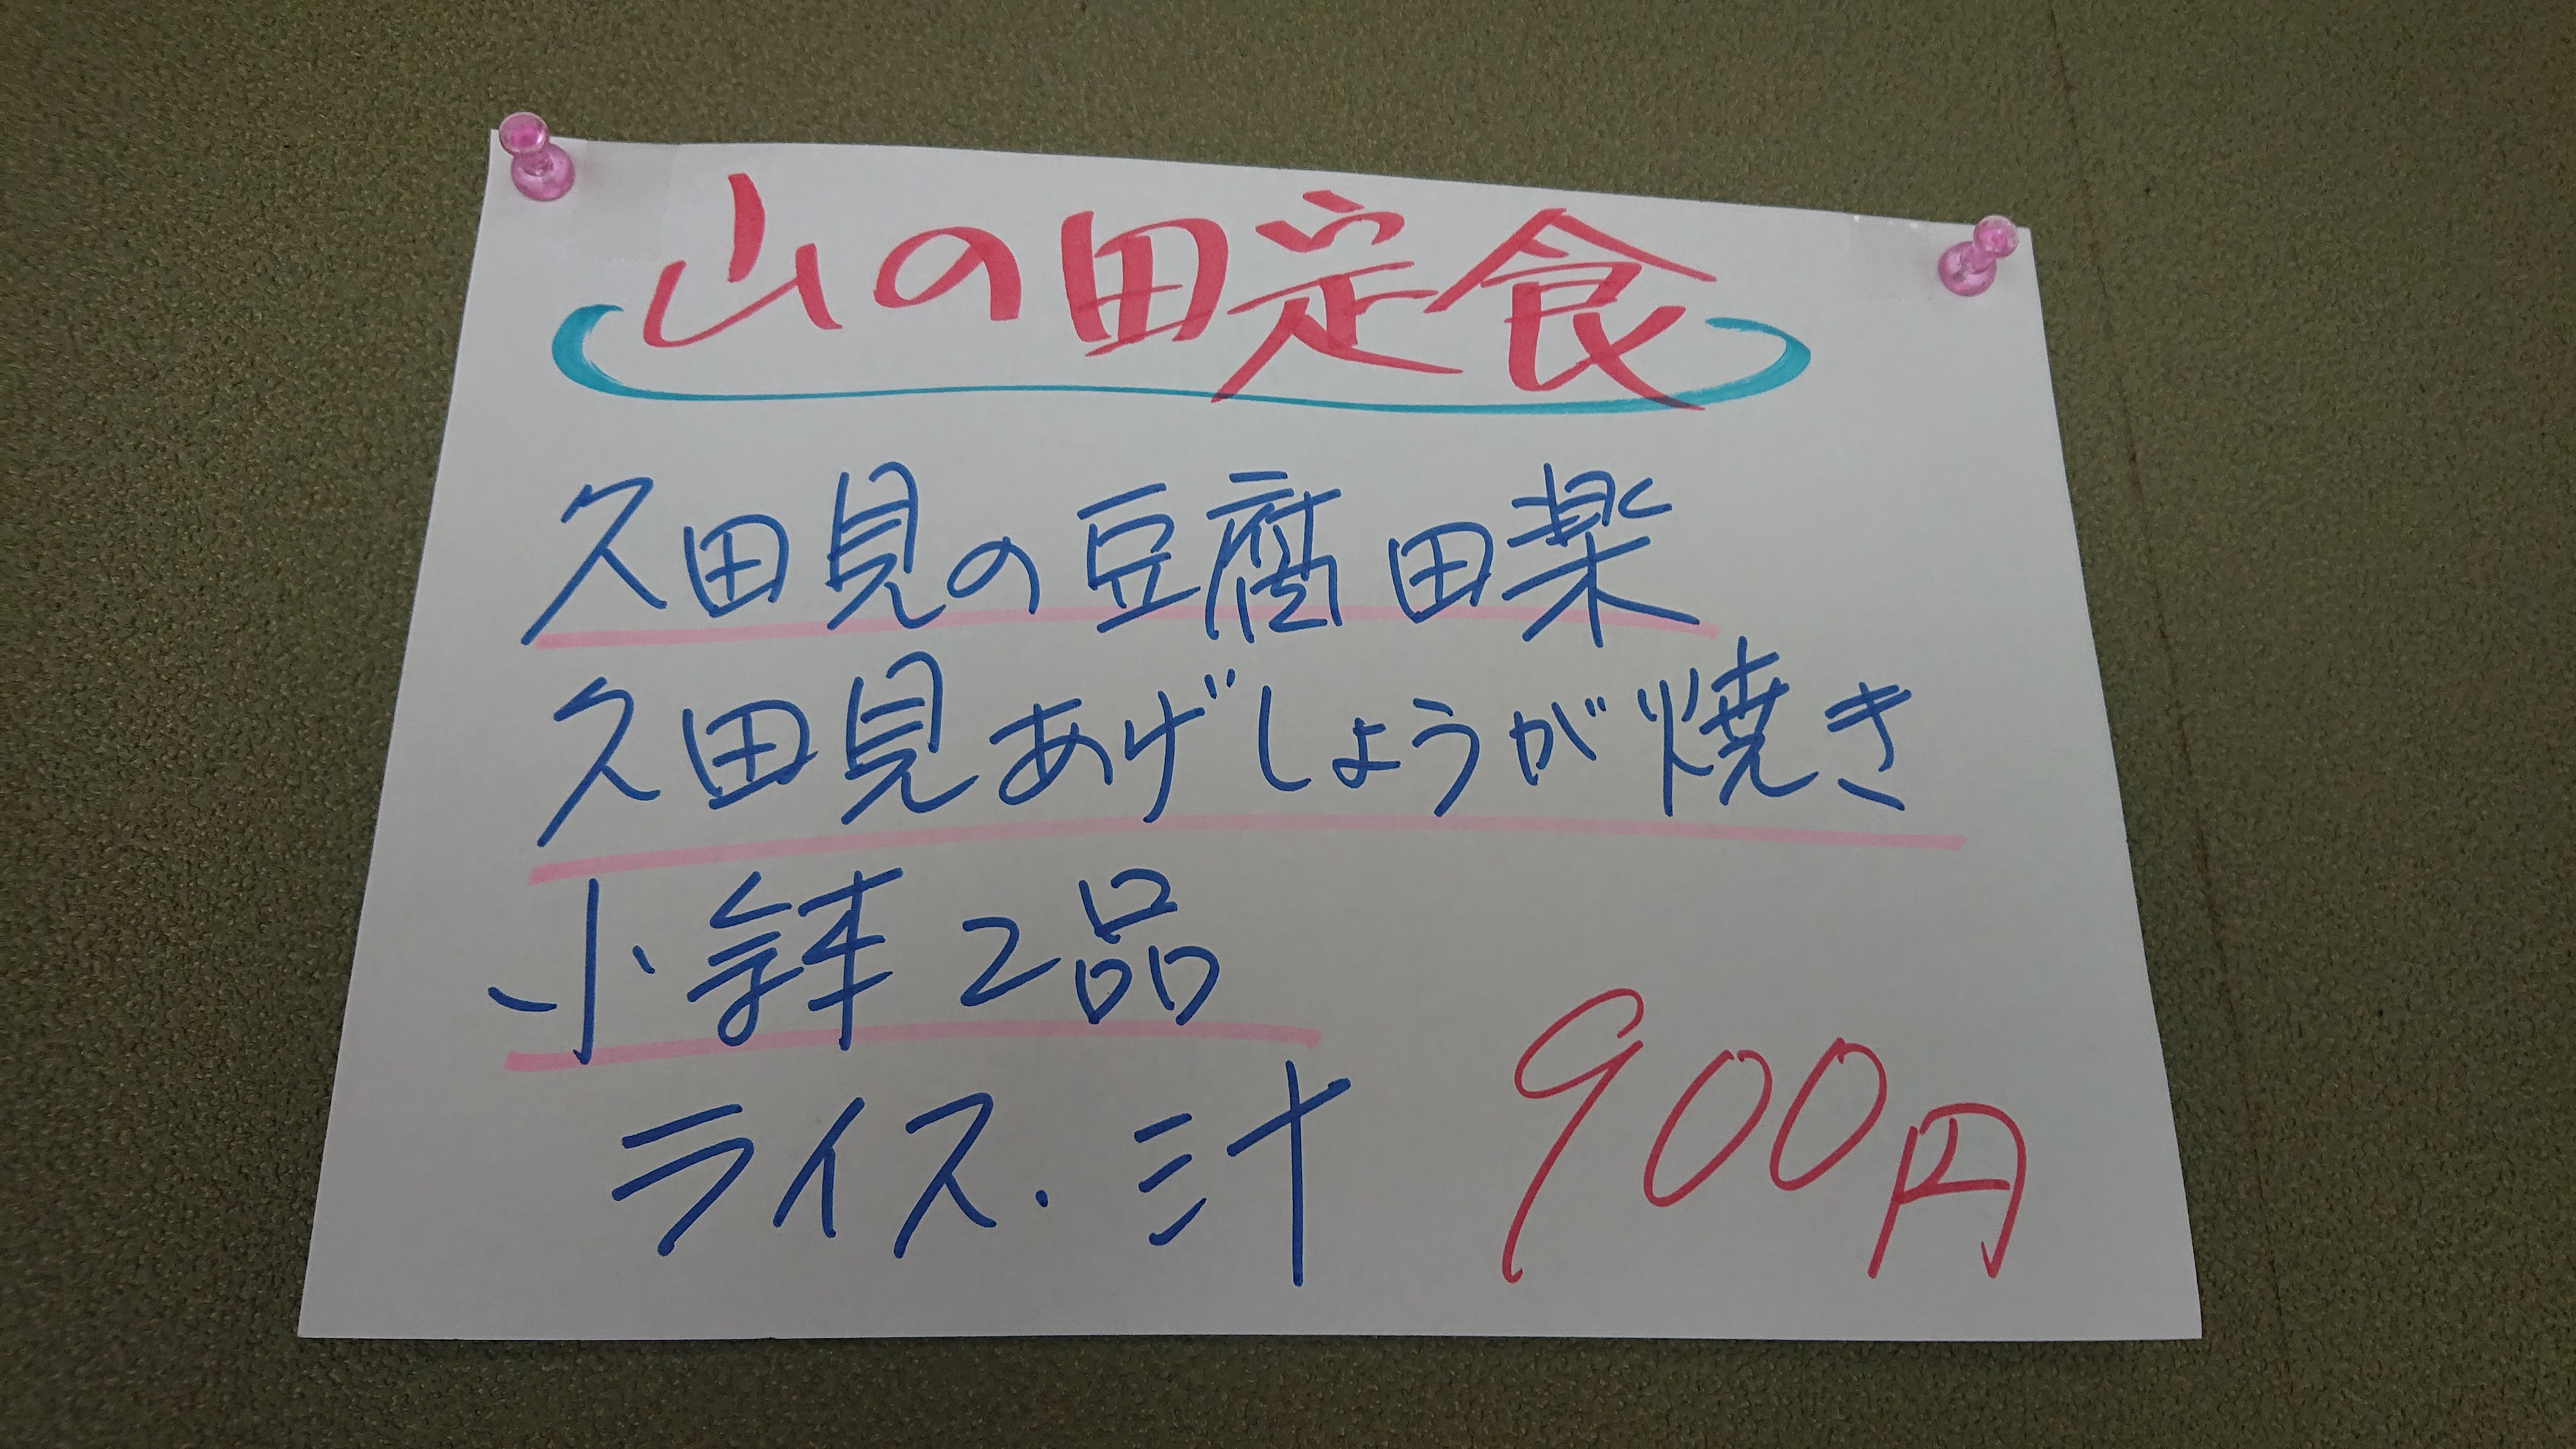 山の田定食
久田見の豆腐田楽
久田見あげしょうが焼き
小鉢2品
ライス・汁
900円